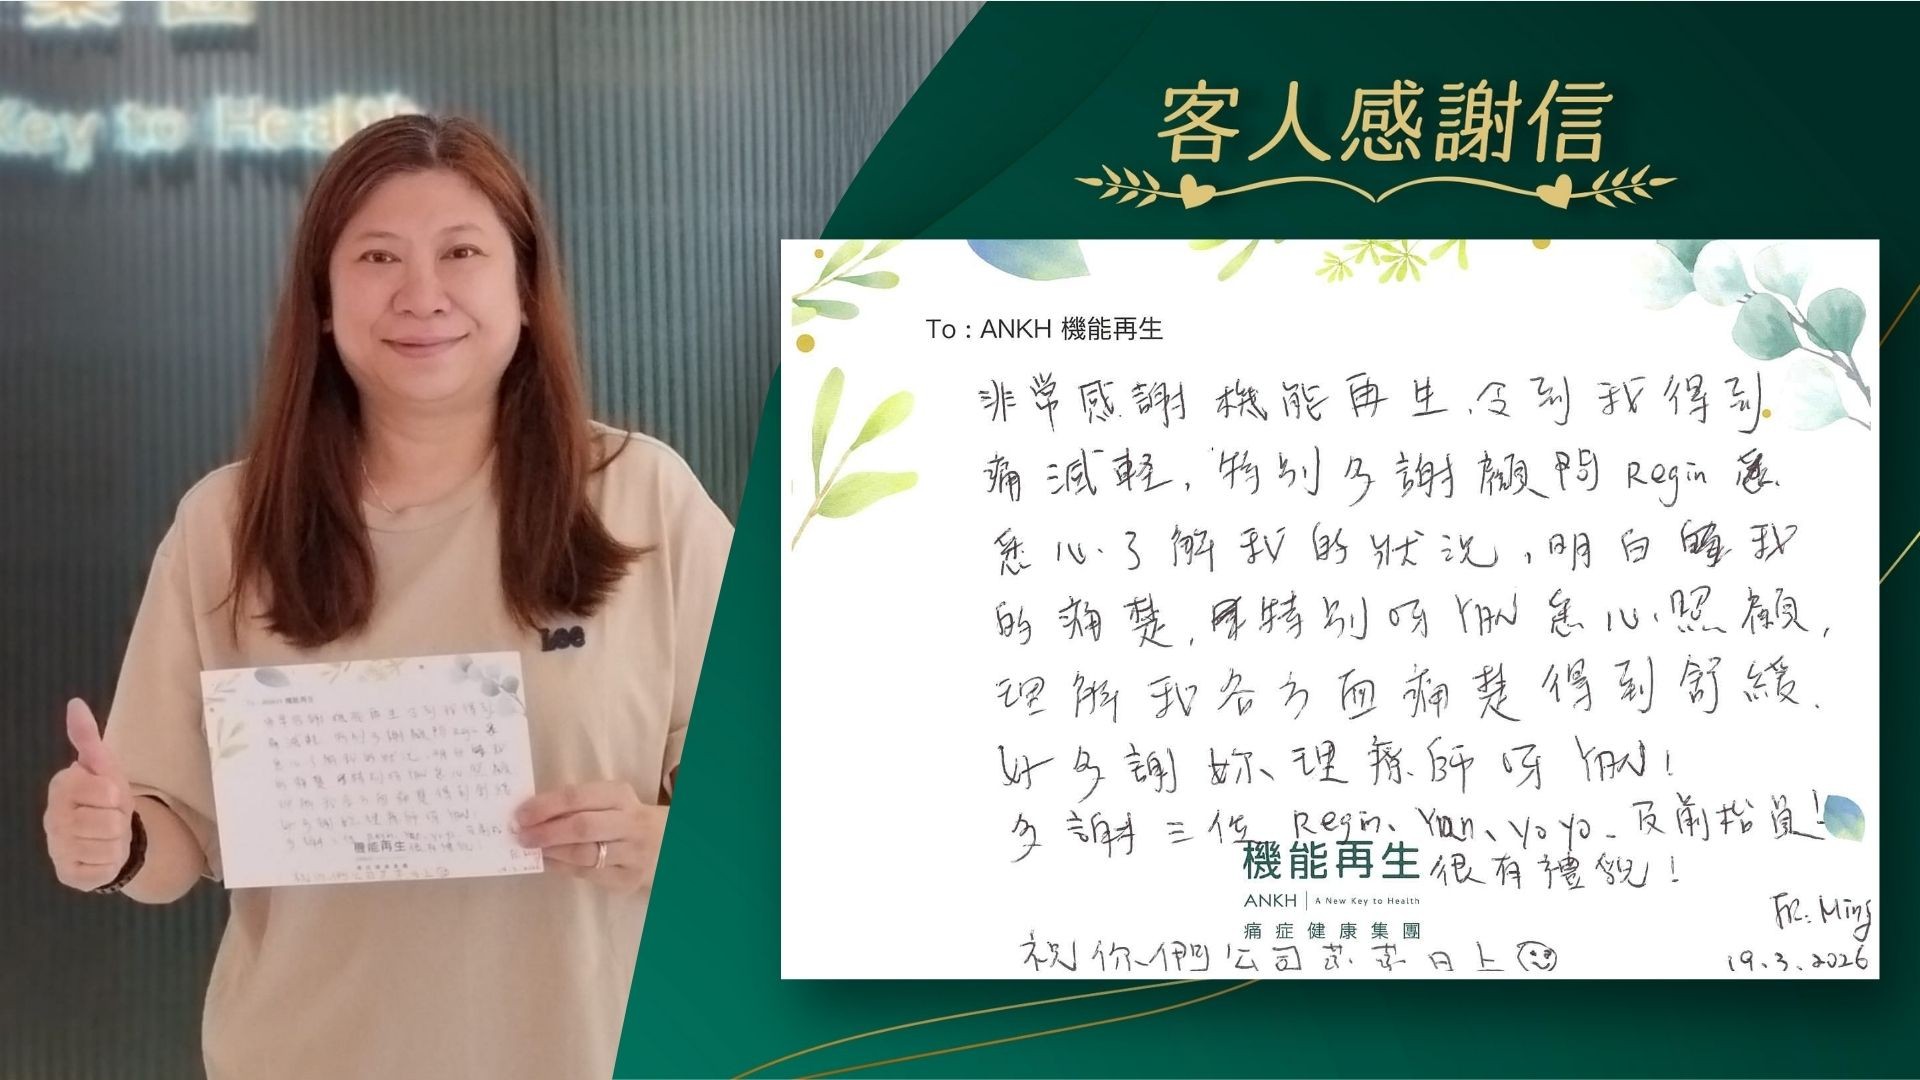 Key to Health
Lee
客人感謝信
To : ANKH 機能再生
非常感謝機能再生,令到我得到
痛減軽,特別多謝顧問 Regin
悉心了解我的狀況,明白我
的痛楚,特別呀 YAN 悉心照顧,
理解我各方面痛楚得到舒緩.
好多謝妳理療師呀 YAN!
多謝三位 Regin、Yan、yoyo、及前枱員!
很有禮貌!
機能再生
ANKH | A New Key to Health
痛症健康集團
FR: Ming
祝你們公司蒸蒸日上
19.3.2026